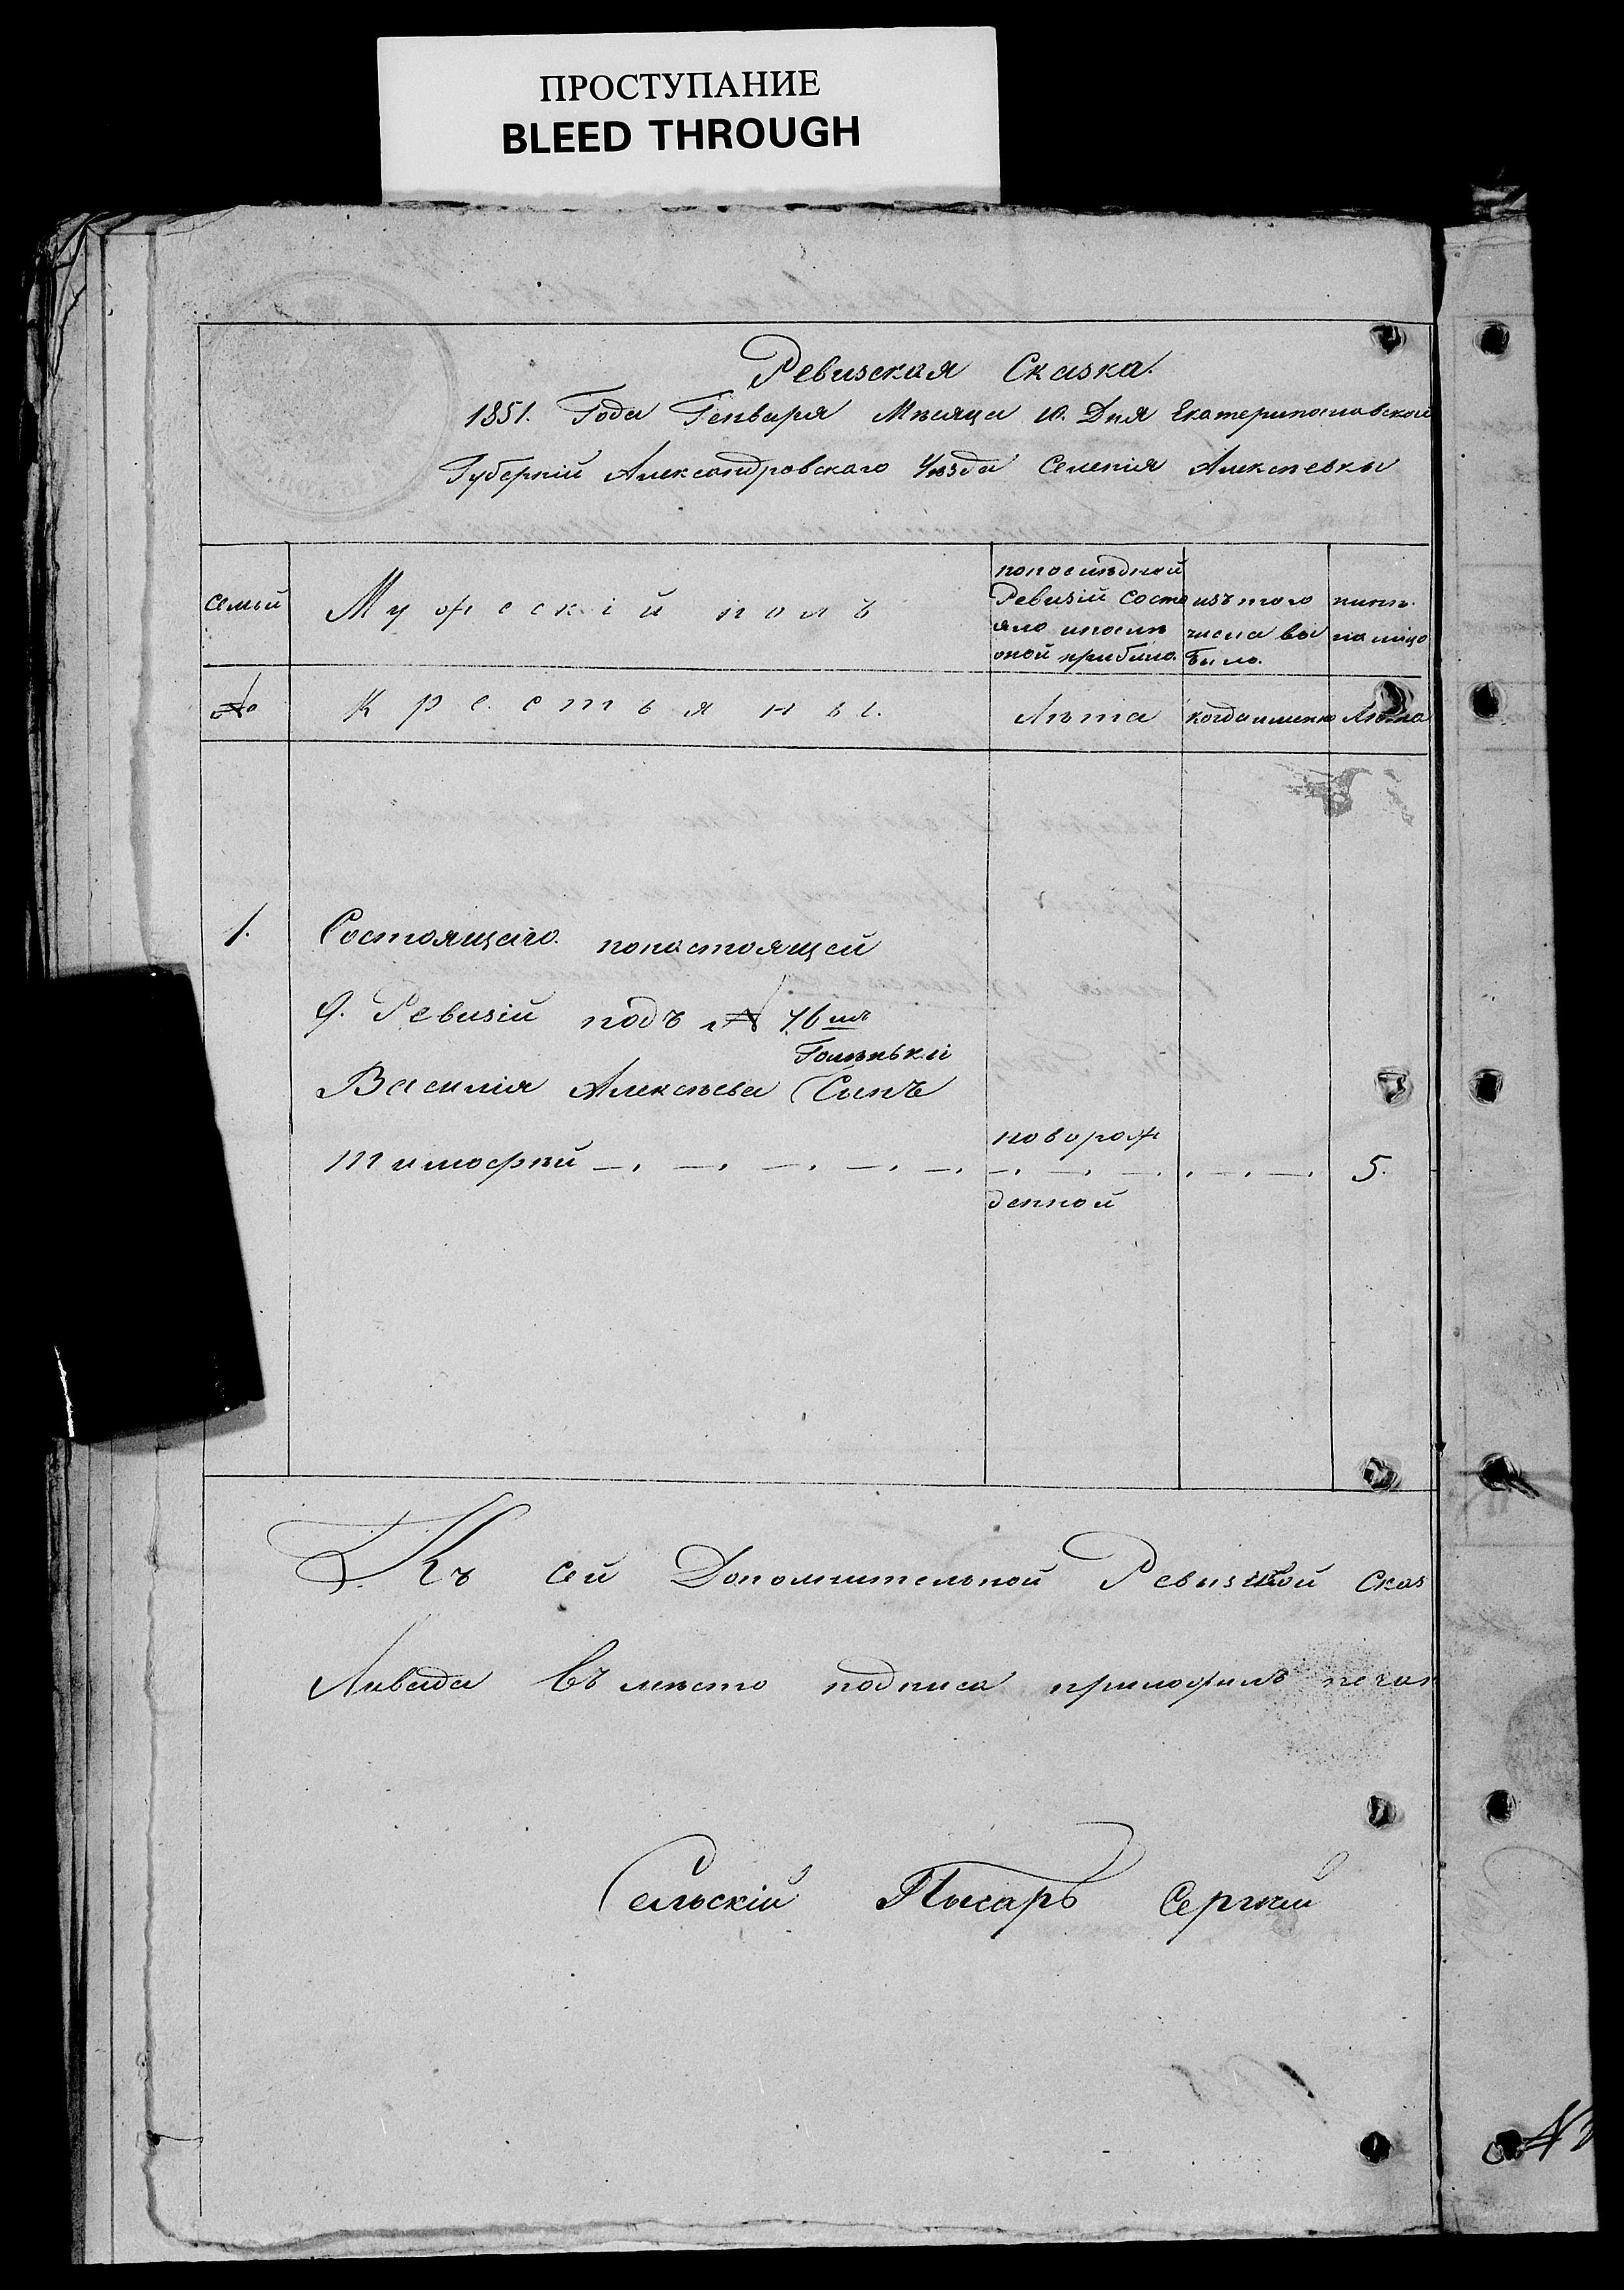 ПРОСТУПАНИЕ
BLEED THROUGH
Ревизская Сказка.
1851. Года Генваря Мѣсяца 10. Дня Екатеринославской
Губерніи Александровскаго Уѣзда Селенія Алексѣевки
Семьи
Мужескій полъ
попослѣдней
Ревизіи состо
яло ипослѣ
оной прибыло.
изътого
числа вы
было.
нынѣ
налицо
№
Крестьяны.
Лѣта
когдаименно
Лѣта
1.
Состоящаго понастоящей
9. Ревизіи подъ № 46мъ
Голинькій
Василія Алексѣева Сынъ
Тимофѣй
новорож
денной
5.
Къ сей Дополнительной Ревизской Сказ
Ливада Въместо подписа приложилъ печат
Сельскій Писарь Сергѣй
№